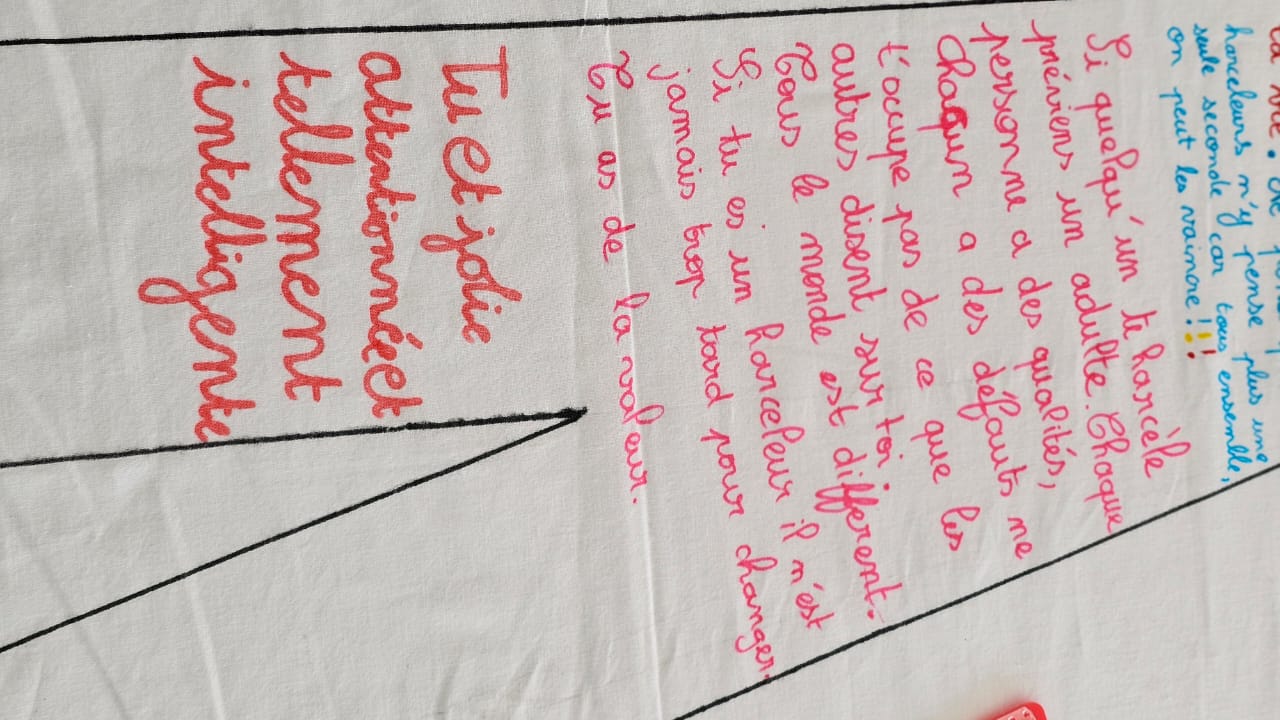 la vie.
harceleurs n'y pense plus une
seule seconde car tous ensemble,
on peut les vaincre !!!
Si quelqu'un te harcèle
préviens un adulte. Chaque
personne a des qualités,
Chaqun a des défauts ne
t'occupe pas de ce que les
autres disent sur toi.
Tous le monde est différent.
Si tu es un harceleur il n'est
jamais trop tard pour changer.
Tu as de la valeur.
Tu et jolie
attentionnéet
tellement
intelligente